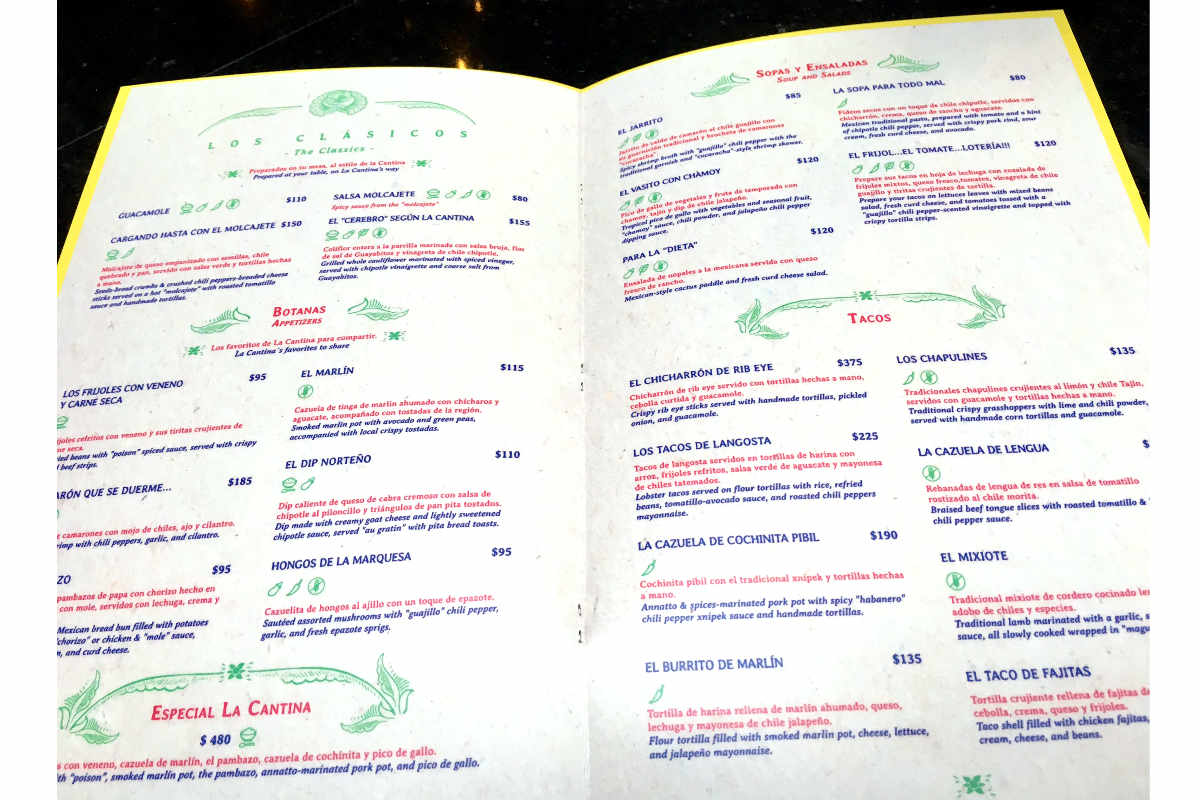 LOS CLÁSICOS
- The Classics -
Preparados en su mesa, al estilo de la Cantina
Prepared at your table, on La Cantina's way
GUACAMOLE $110
CARGANDO HASTA CON EL MOLCAJETE $150
Molcajete de queso empanizado con semillas, chile
quebrado y pan, servido con salsa verde y tortillas hechas
a mano.
Seeds-bread crumbs & crushed chili peppers-breaded cheese
sticks served on a hot "molcajete" with roasted tomatillo
sauce and handmade tortillas.
SALSA MOLCAJETE $80
Spicy sauce from the "molcajete"
EL "CEREBRO" SEGÚN LA CANTINA $155
Coliflor entera a la parrilla marinada con salsa bruja, flor
de sal de Guayabitos y vinagreta de chile chipotle.
Grilled whole cauliflower marinated with spiced vinegar,
served with chipotle vinaigrette and coarse salt from
Guayabitos.
BOTANAS
APPETIZERS
Los favoritos de La Cantina para compartir.
La Cantina's favorites to share
LOS FRIJOLES CON VENENO $95
Y CARNE SECA
refritos con veneno y sus tiritas crujientes de
seca.
beans with "poison" spiced sauce, served with crispy
beef strips.
QUE SE DUERME... $185
camarones con mojo de chiles, ajo y cilantro.
with chili peppers, garlic, and cilantro.
$95
pambazos de papa con chorizo hecho en
con mole, servidos con lechuga, crema y
Mexican bread bun filled with potatoes
"chorizo" or chicken & "mole" sauce,
and curd cheese.
EL MARLÍN $115
Cazuela de tinga de marlin ahumado con chícharos y
aguacate, acompañado con tostadas de la región.
Smoked marlin pot with avocado and green peas,
accompanied with local crispy tostadas.
EL DIP NORTEÑO $110
Dip caliente de queso de cabra cremoso con salsa de
chipotle al piloncillo y triángulos de pan pita tostados.
Dip made with creamy goat cheese and lightly sweetened
chipotle sauce, served "au gratin" with pita bread toasts.
HONGOS DE LA MARQUESA $95
Cazuelita de hongos al ajillo con un toque de epazote.
Sautéed assorted mushrooms with "guajillo" chili pepper,
garlic, and fresh epazote sprigs.
ESPECIAL LA CANTINA
$ 480
con veneno, cazuela de marlín, el pambazo, cazuela de cochinita y pico de gallo.
"poison", smoked marlin pot, the pambazo, annatto-marinated pork pot, and pico de gallo.
SOPAS Y ENSALADAS
SOUP AND SALADS
EL JARRITO $85
Jarrito de caldo de camarón al chile guajillo con
su guarnición tradicional y brocheta de camarones
"cucaracha".
Spicy shrimp broth with "guajillo" chili pepper with the
traditional garnish and "cucaracha"-style shrimp skewer.
EL VASITO CON CHAMOY $120
Pico de gallo de vegetales y fruta de temporada con
chamoy, tajín y dip de chile jalapeño.
Tropical pico de gallo with vegetables and seasonal fruit,
"chamoy" sauce, chili powder, and jalapeño chili pepper
dipping sauce.
PARA LA "DIETA" $120
Ensalada de nopales a la mexicana servido con queso
fresco de rancho.
Mexican-style cactus paddle and fresh curd cheese salad.
LA SOPA PARA TODO MAL $80
Fideos secos con un toque de chile chipotle, servidos con
chicharrón, crema, queso de rancho y aguacate.
Mexican traditional pasta, prepared with tomato and a hint
of chipotle chili pepper, served with crispy pork rind, sour
cream, fresh curd cheese, and avocado.
EL FRIJOL...EL TOMATE...LOTERÍA!!! $120
Prepare sus tacos en hoja de lechuga con ensalada de
frijoles mixtos, queso fresco,tomates, vinagreta de chile
guajillo y tiritas crujientes de tortilla.
Prepare your tacos on lettuce leaves with mixed beans
salad, fresh curd cheese, and tomatoes tossed with a
"guajillo" chili pepper-scented vinaigrette and topped with
crispy tortilla strips.
TACOS
EL CHICHARRÓN DE RIB EYE $375
Chicharrón de rib eye servido con tortillas hechas a mano,
cebolla curtida y guacamole.
Crispy rib eye sticks served with handmade tortillas, pickled
onion, and guacamole.
LOS TACOS DE LANGOSTA $225
Tacos de langosta servidos en tortillas de harina con
arroz, frijoles refritos, salsa verde de aguacate y mayonesa
de chiles tatemados.
Lobster tacos served on flour tortillas with rice, refried
beans, tomatillo-avocado sauce, and roasted chili peppers
mayonnaise.
LA CAZUELA DE COCHINITA PIBIL $190
Cochinita pibil con el tradicional xnipek y tortillas hechas
a mano.
Annatto & spices-marinated pork pot with spicy "habanero"
chili pepper xnipek sauce and handmade tortillas.
EL BURRITO DE MARLÍN $135
Tortilla de harina rellena de marlin ahumado, queso,
lechuga y mayonesa de chile jalapeño.
Flour tortilla filled with smoked marlin pot, cheese, lettuce,
and jalapeño mayonnaise.
LOS CHAPULINES $135
Tradicionales chapulines crujientes al limón y chile Tajin,
servidos con guacamole y tortillas hechas a mano.
Traditional crispy grasshoppers with lime and chili powder,
served with handmade corn tortillas and guacamole.
LA CAZUELA DE LENGUA $
Rebanadas de lengua de res en salsa de tomatillo
rostizado al chile morita.
Braised beef tongue slices with roasted tomatillo &
chili pepper sauce.
EL MIXIOTE
Tradicional mixiote de cordero cocinado
adobo de chiles y especies.
Traditional lamb marinated with a garlic,
sauce, all slowly cooked wrapped in
EL TACO DE FAJITAS
Tortilla crujiente rellena de fajitas
cebolla, crema, queso y frijoles.
Taco shell filled with chicken fajitas,
cream, cheese, and beans.